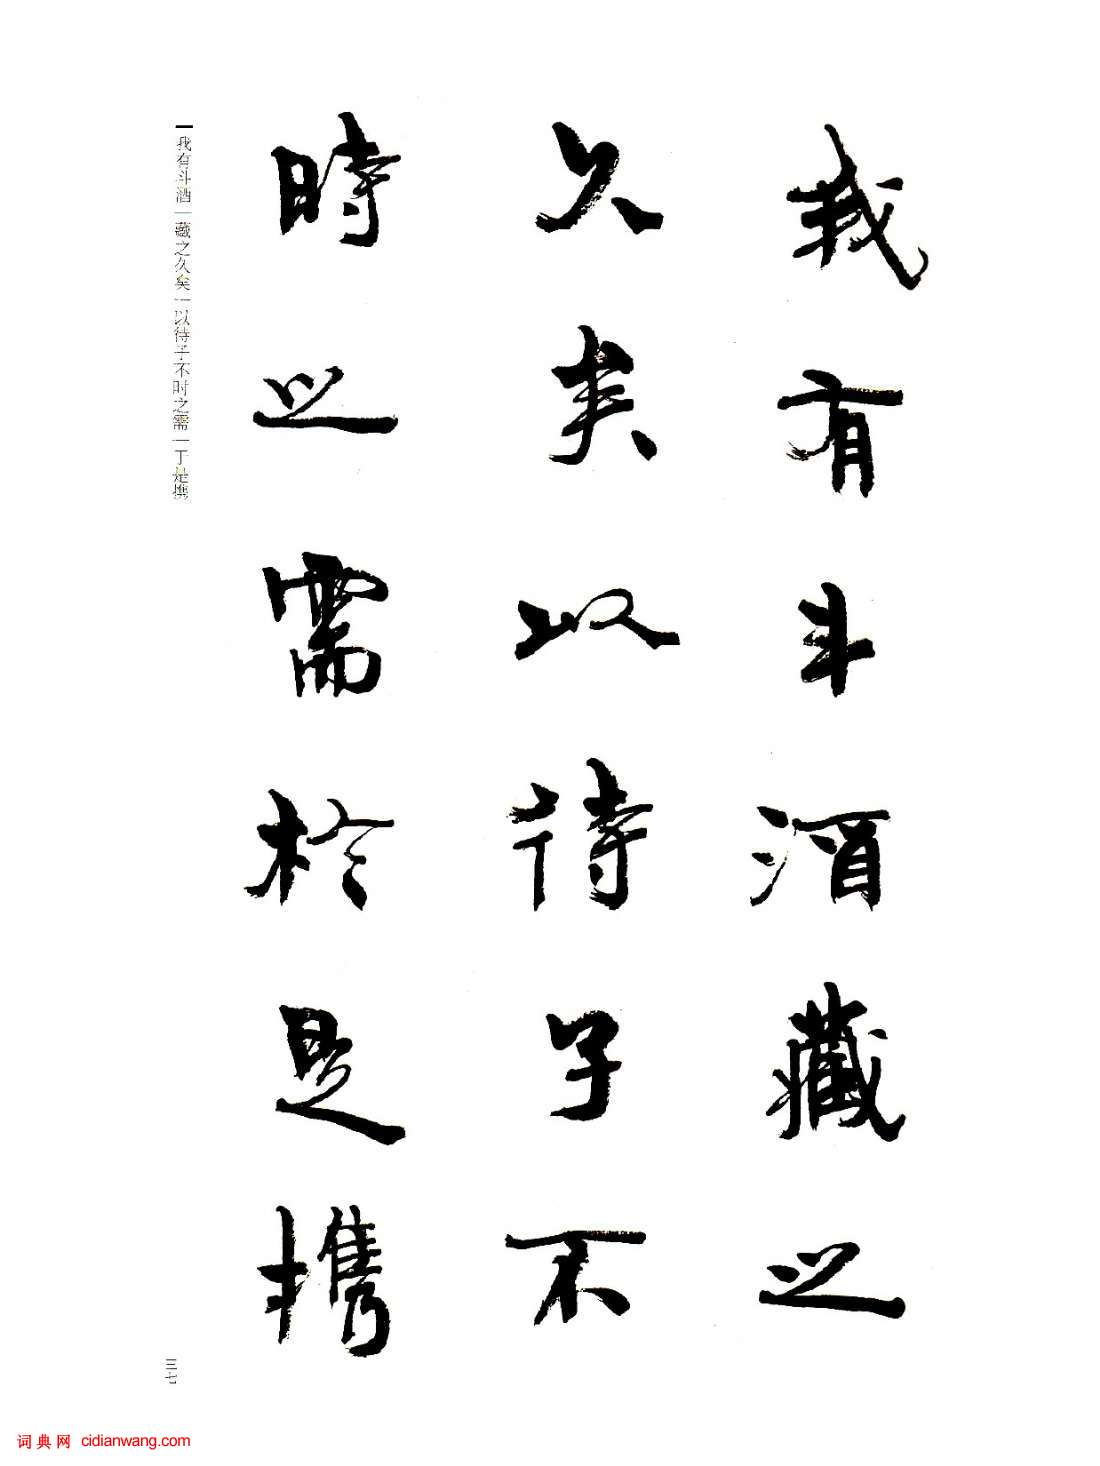 我有斗酒藏之
久矣以待子不
時之需於是携
我有斗酒一藏之久矣一以待子不时之需一于是携
三七
词典网 cidianwang.com